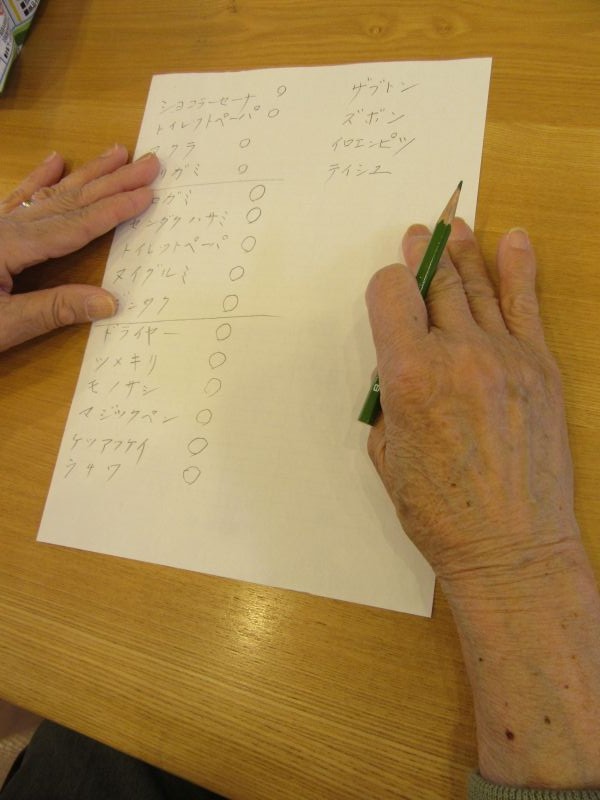 トイレットペーパ ○
クラ ○
リガミ ○
ガミ ○
センダクハサミ ○
トイレットペーパ ○
ヌイグルミ ○
ドライヤー ○
ツメキリ ○
モノサシ ○
マジックペン ○
ケツアツケイ ○
ウチワ ○
ザブトン
ズボン
イロエンピツ
テイシュ